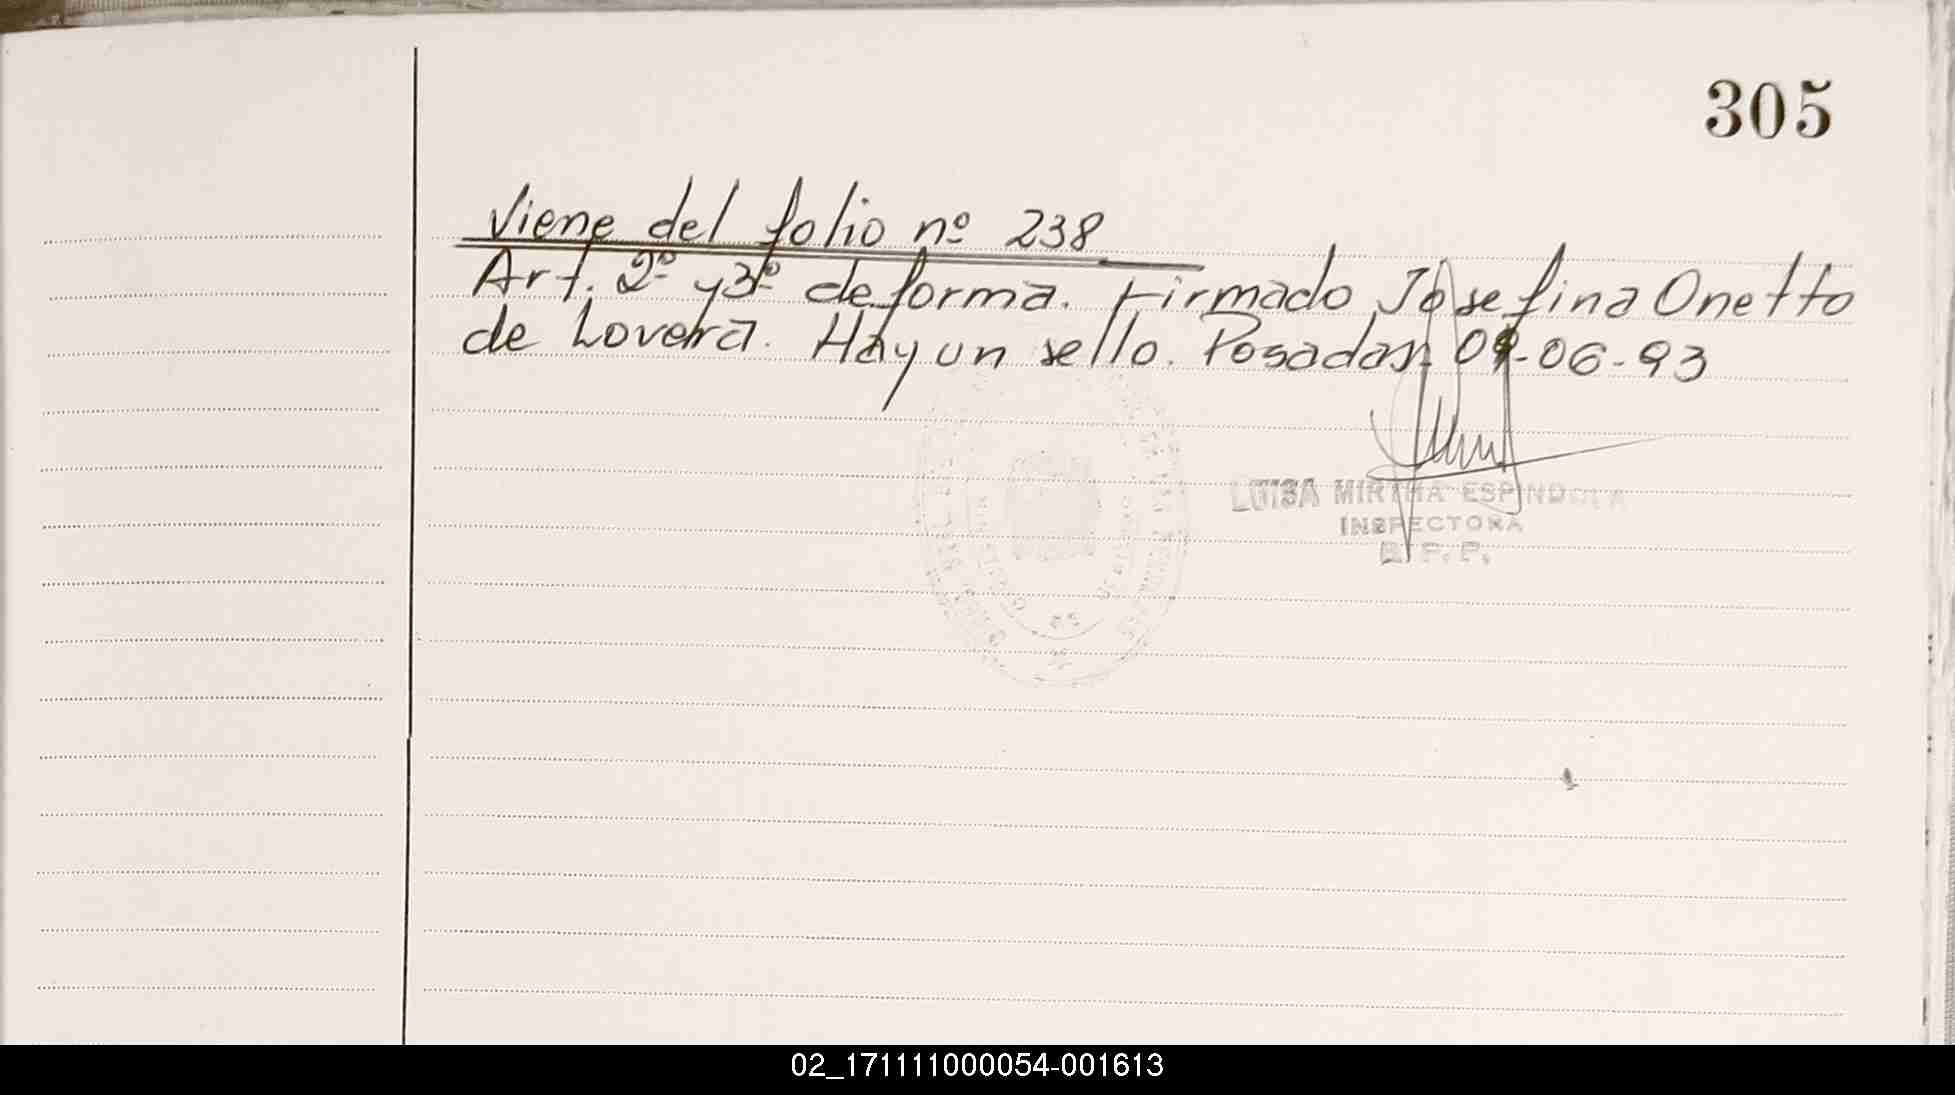 305
Viene del folio nº 238
Art. 2º y 3º de forma. Firmado Josefina Onetto
de Lovera. Hay un sello. Posadas, 09-06-93
LUISA MIRTHA ESPINDOLA
INSPECTORA
02_171111000054-001613